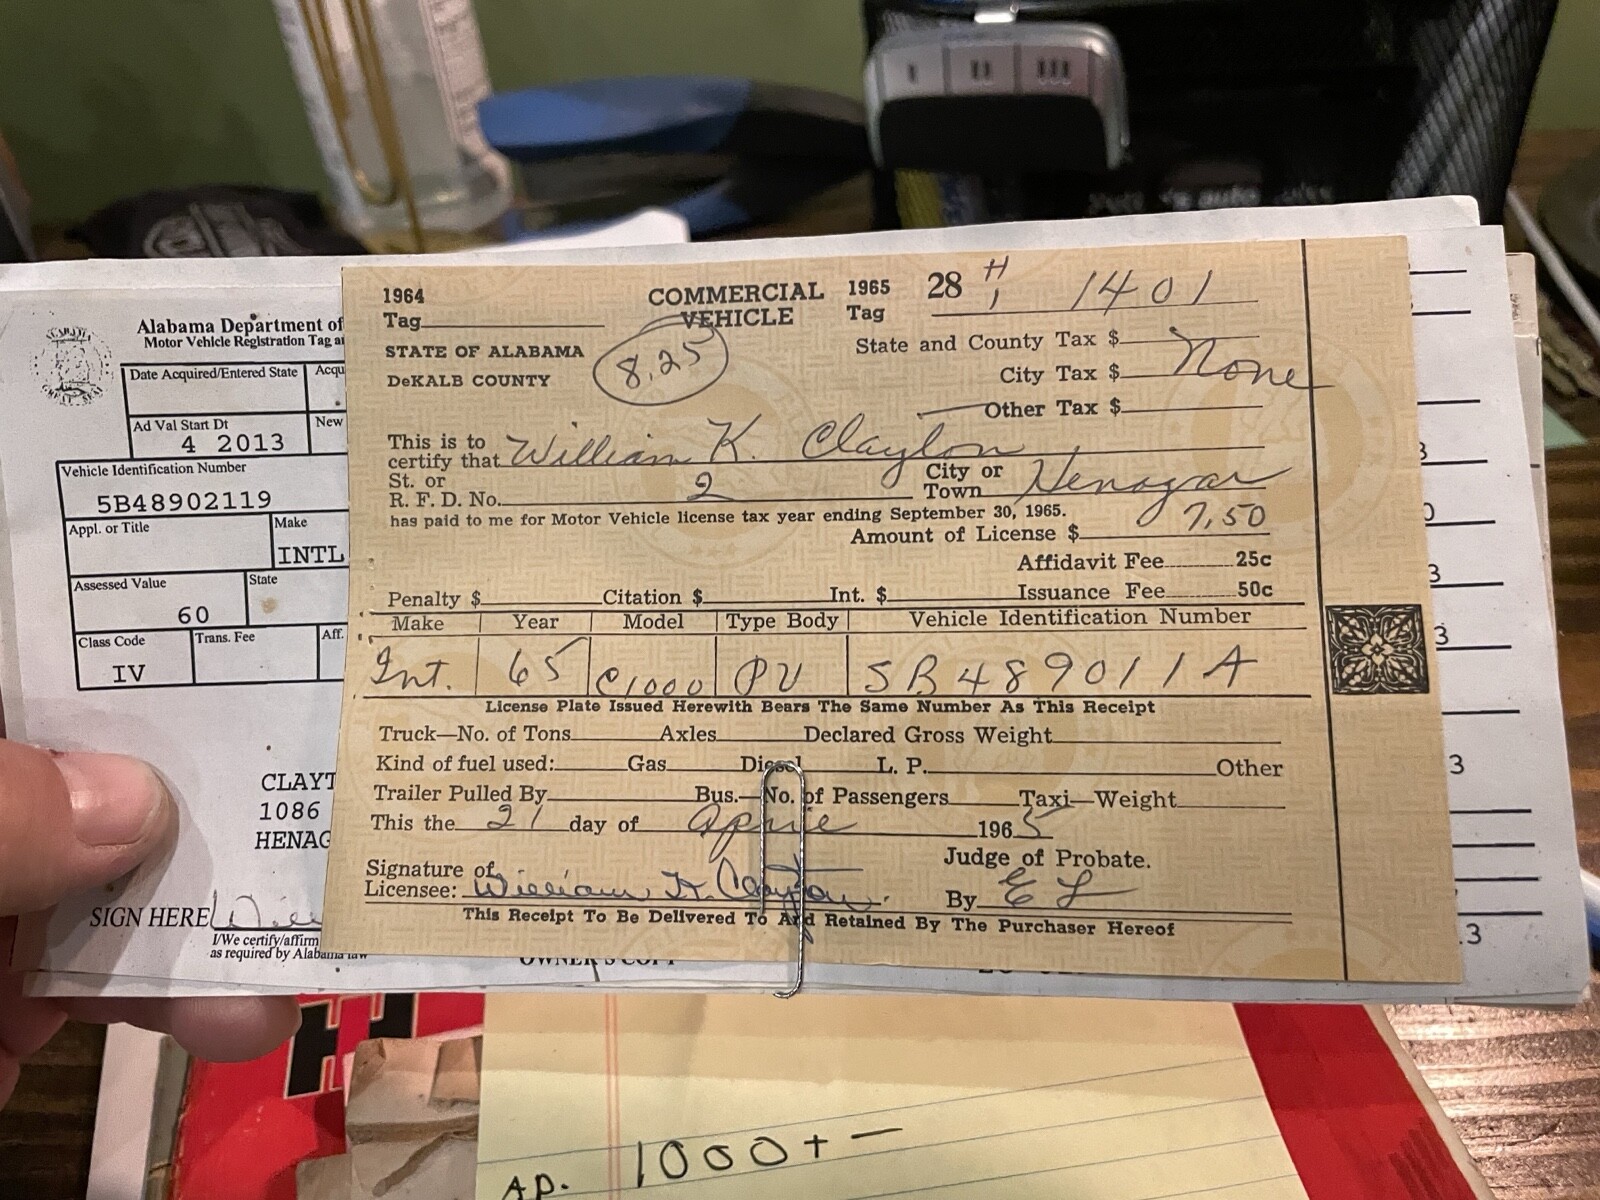 I II III
1964
Tag
COMMERCIAL
VEHICLE
1965
Tag
28 H 1 1401
STATE OF ALABAMA
DeKALB COUNTY
8.25
State and County Tax $
City Tax $ None
Other Tax $
This is to
certify that William K. Clayton
St. or
R. F. D. No. 2 City or
Town Henagar
has paid to me for Motor Vehicle license tax year ending September 30, 1965.
Amount of License $ 7.50
Affidavit Fee 25c
Penalty $ Citation $ Int. $ Issuance Fee 50c
Make Year Model Type Body Vehicle Identification Number
Int. 65 C1000 PU SB489011A
License Plate Issued Herewith Bears The Same Number As This Receipt
Truck—No. of Tons Axles Declared Gross Weight
Kind of fuel used: Gas Diesel L. P. Other
Trailer Pulled By Bus.—No. of Passengers Taxi—Weight
This the 21 day of April 1965
Judge of Probate.
Signature of
Licensee: William K. Clayton By E L
This Receipt To Be Delivered To And Retained By The Purchaser Hereof
Alabama Department of
Motor Vehicle Registration Tag a
Date Acquired/Entered State Acqu
Ad Val Start Dt New
4 2013
Vehicle Identification Number
5B48902119
Appl. or Title Make
INTL
Assessed Value State
60
Class Code Trans. Fee Aff.
IV
CLAYT
1086
HENAG
SIGN HERE Will
I/We certify/affirm
as required by Alabama law
OWNER'S COPY
3
0
3
3
3
.3
AP. 1000 + —